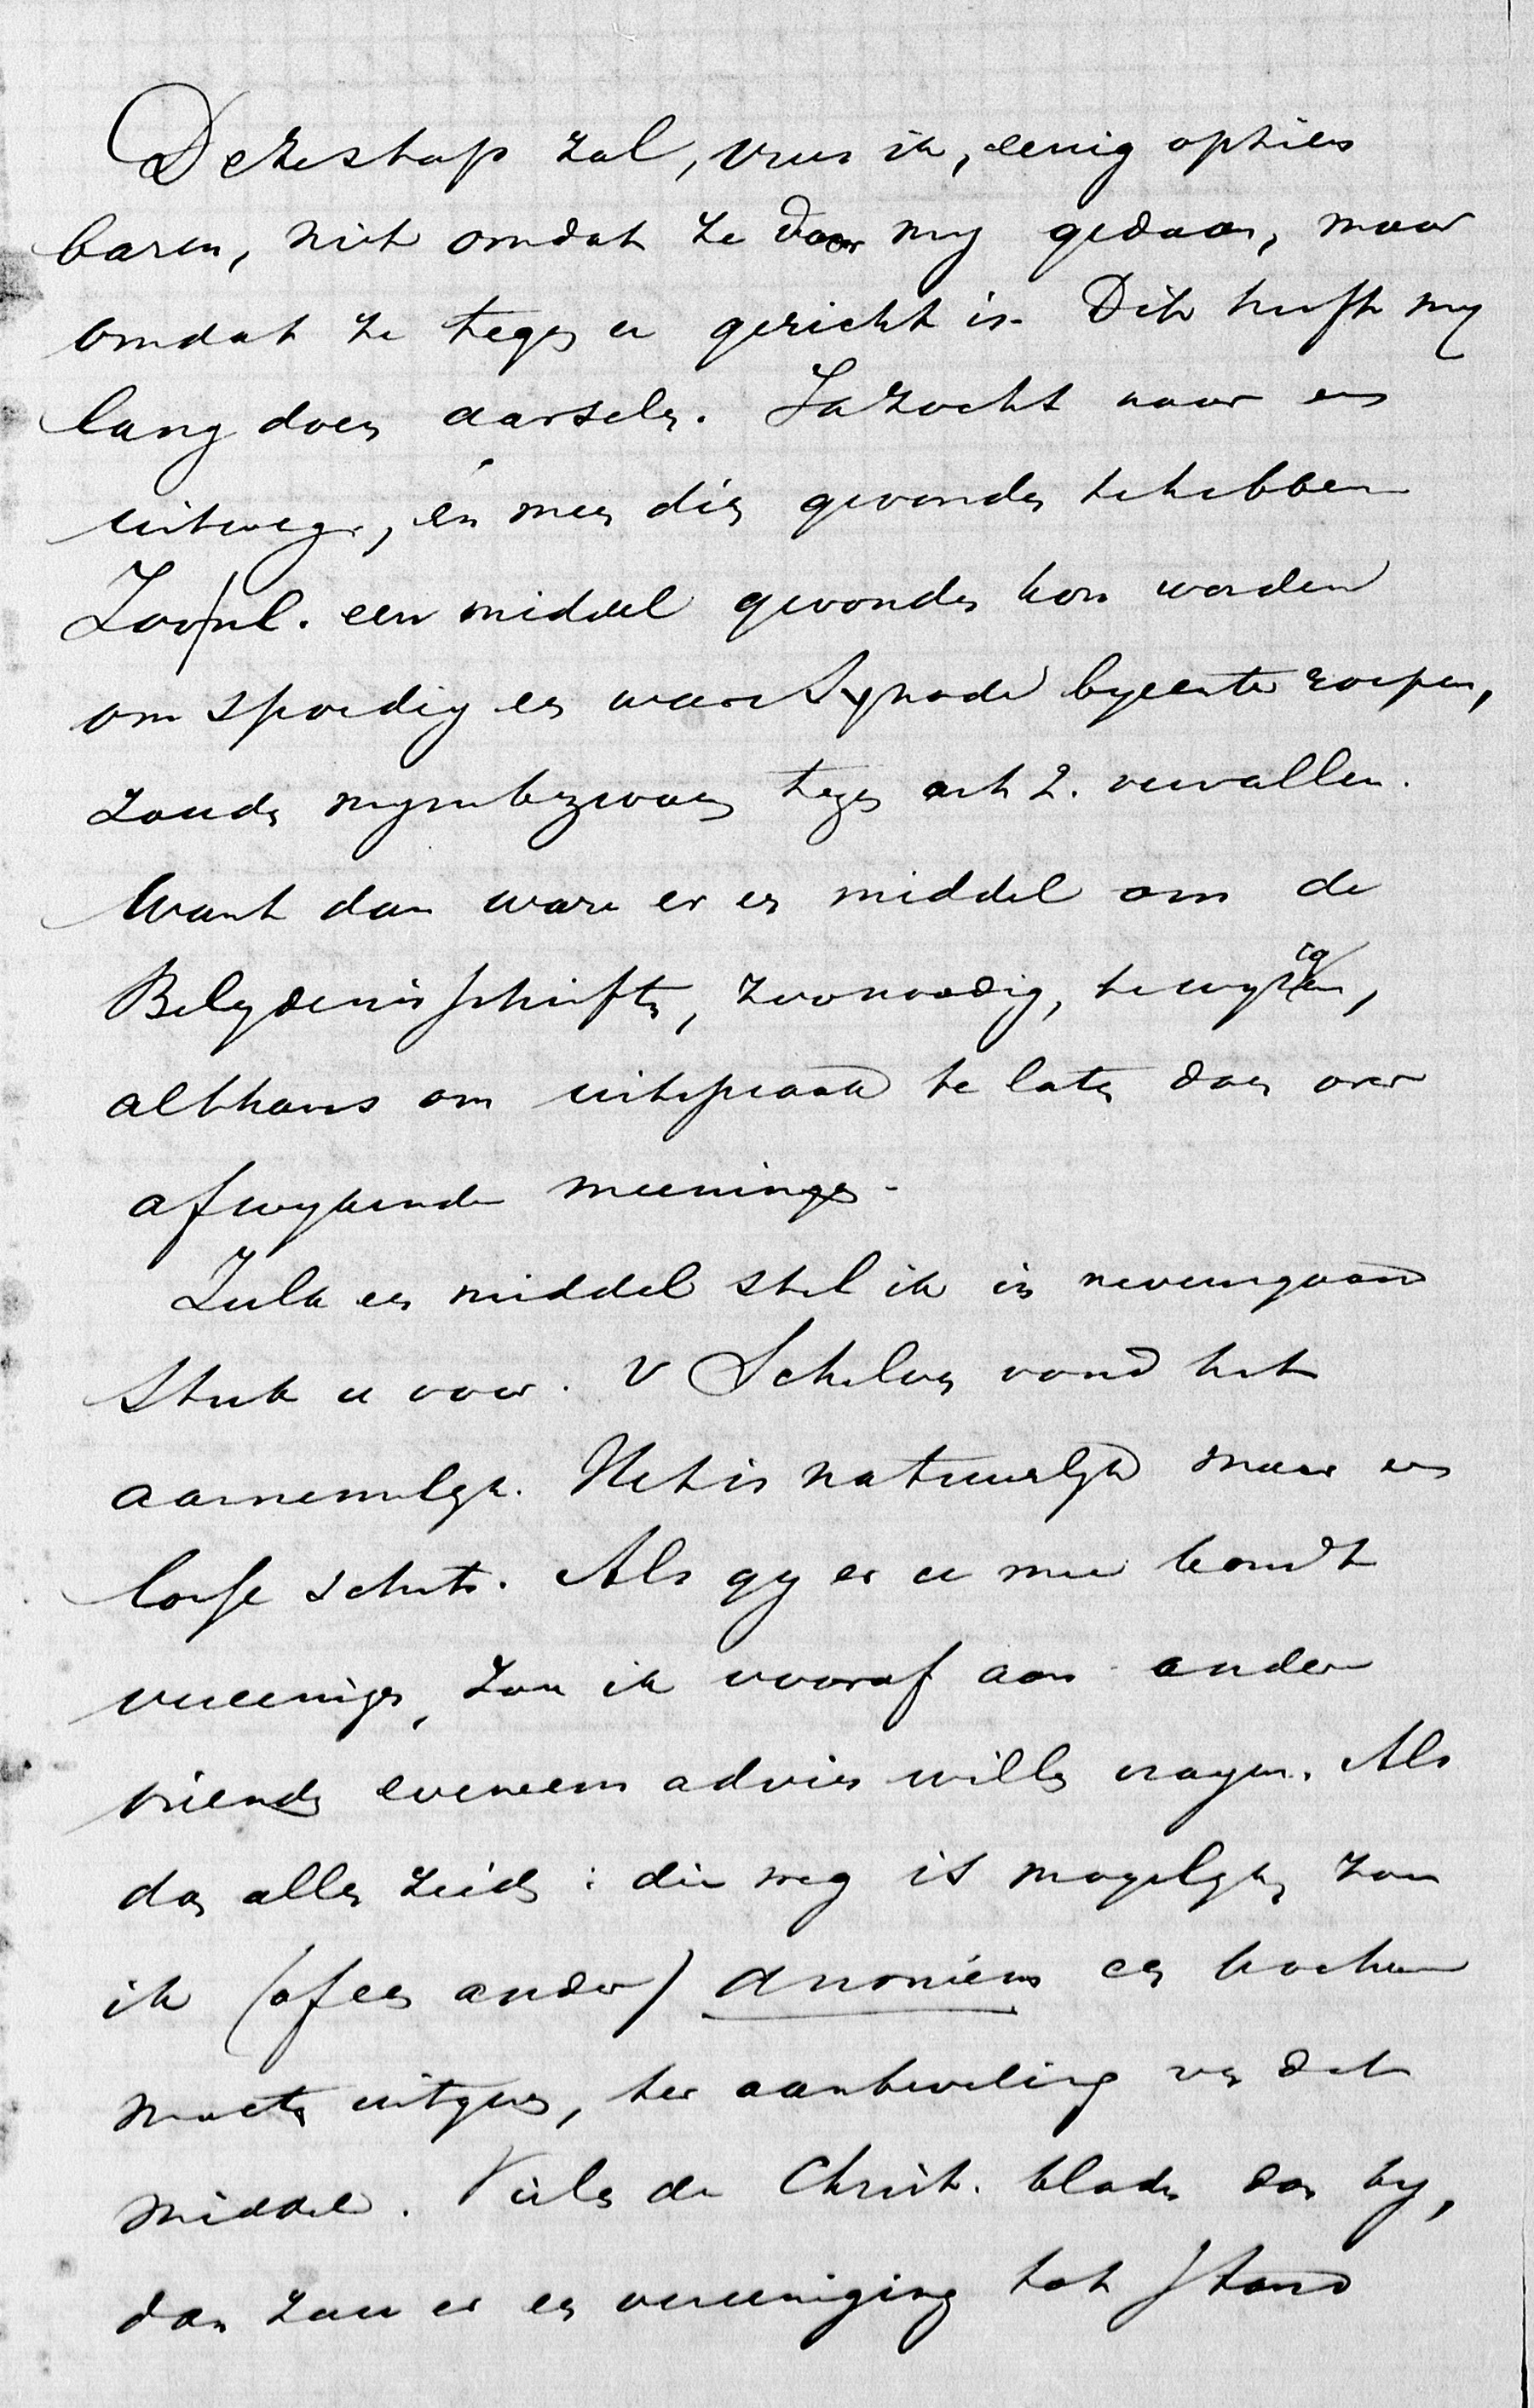 Deze stap zal, vrees ik, eenig opzien
baren, niet omdat ze door my gedaan, maar
omdat ze tegen u gericht is. Dit heeft my
lang doen aarselen. Ik zocht naar een
uitweg, en meen dien gevonden te hebben
Zoo nl. een middel gevonden kon worden
om spoedig een ware Synode byeente roepen,
zouden myn bezwaren tegen art 2. vervallen.
Want dan ware er een middel om de
Belydenisschriften, zoo noodig, te wyzigen,
althans om uitspraak te laten doen over
afwykende meeningen.
Zulk een middel stel ik in nevensgaand
stuk u voor. v Schelven vond het
aannemelyk. Het is natuurlyk maar een
losse schets. Als gy er u mee kondt
vereenigen, zou ik vooraf aan andere
vrienden eveneens advies willen vragen. Als
dan allen zeiden: die weg is mogelyk, zou
ik (of een ander) anoniem een brochure
moeten uitgeven, ter aanbeveling van dat
middel. Vielen de Christ. bladen dan by,
dan zou er een vereeniging tot stand